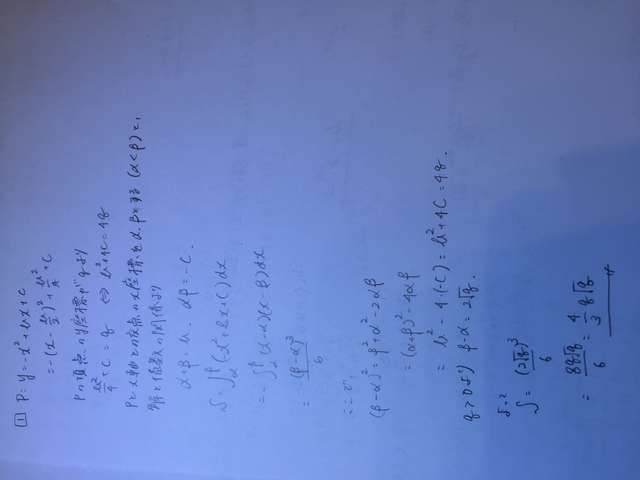 ① P: y = -x² + bx + c
= -(x - b/2)² + b²/4 + c
Pの頂点のy座標がqより
b²/4 + c = q ⇔ b² + 4c = 4q
Pとx軸との交点のx座標をα, βとする (α<β)と、
解と係数の関係より
α+β = b, αβ = -c.
S = ∫_α^β (-x² + bx + c) dx
= -∫_α^β (x-α)(x-β) dx
= (β-α)³/6
ここで
(β-α)² = β² + α² - 2αβ
= (α+β)² - 4αβ
= b² - 4·(-c) = b² + 4c = 4q.
q>0より β-α = 2√q.
よって
S = (2√q)³/6
= 8q√q/6 = 4/3 q√q